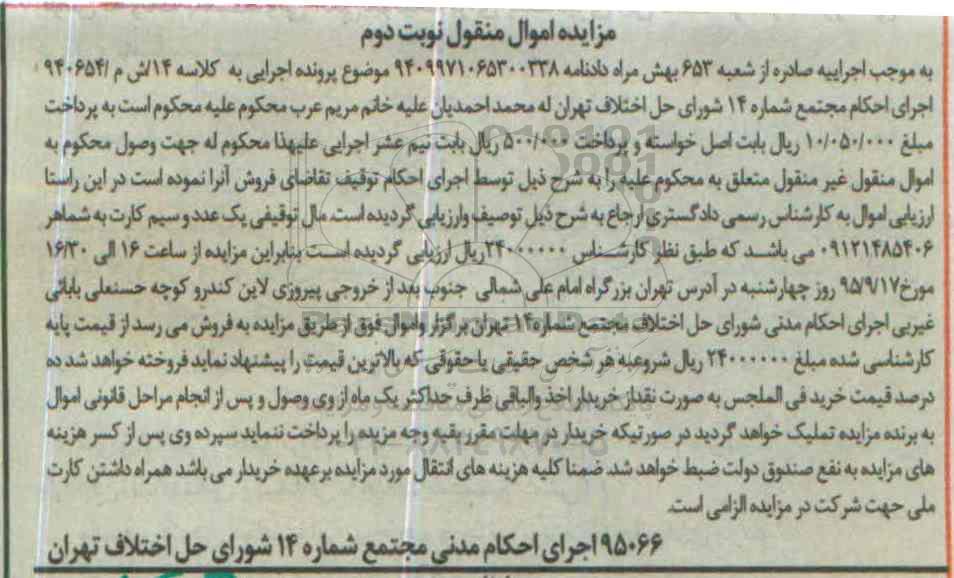 مزایده اموال منقول نوبت دوم
به موجب اجراییه صادره از شعبه ۶۵۳ بهش مراه دادنامه ۹۴۰۹۹۷۱۰۶۵۳۰۰۳۳۸ موضوع پرونده اجرایی به کلاسه ۱۴/ش م /۹۴۰۶۵۴
اجرای احکام مجتمع شماره ۱۴ شورای حل اختلاف تهران له محمد احمدیان علیه خانم مریم عرب محکوم علیه محکوم است به پرداخت
مبلغ ۱۰/۰۵۰/۰۰۰ ریال بابت اصل خواسته و پرداخت ۵۰۰/۰۰۰ ریال بابت نیم عشر اجرایی علیهذا محکوم له جهت وصول محکوم به
اموال منقول غیر منقول متعلق به محکوم علیه را به شرح ذیل توسط اجرای احکام توقیف تقاضای فروش آنرا نموده است در این راستا
ارزیابی اموال به کارشناس رسمی دادگستری ارجاع به شرح ذیل توصیف وارزیابی گردیده است. مال توقیفی یک عدد و سیم کارت به شماهر
۰۹۱۲۱۴۸۵۴۰۶ می باشد که طبق نظر کارشناس ۲۴۰۰۰۰۰۰ریال ارزیابی گردیده است بنابراین مزایده از ساعت ۱۶ الی ۱۶/۳۰
مورخ۹۵/۹/۱۷ روز چهارشنبه در آدرس تهران بزرگراه امام علی شمالی جنوب بعد از خروجی پیروزی لاین کندرو کوچه حسنعلی بابائی
غیربی اجرای احکام مدنی شورای حل اختلاف مجتمع شماره۱۴ تهران برگزار واموال فوق از طریق مزایده به فروش می رسد از قیمت پایه
کارشناسی شده مبلغ ۲۴۰۰۰۰۰۰ ریال شروعبه هر شخص حقیقی یا حقوقی که بالاترین قیمت را پیشنهاد نماید فروخته خواهد شد ده
درصد قیمت خرید فی الملجس به صورت نقداز خریدار اخذ والباقی ظرف حداکثر یک ماه از وی وصول و پس از انجام مراحل قانونی اموال
به برنده مزایده تملیک خواهد گردید در صورتیکه خریدار در مهلت مقرر بقیه وجه مزیده را پرداخت ننماید سپرده وی پس از کسر هزینه
های مزایده به نفع صندوق دولت ضبط خواهد شد. ضمنا کلیه هزینه های انتقال مورد مزایده برعهده خریدار می باشد همراه داشتن کارت
ملی جهت شرکت در مزایده الزامی است.
۹۵۰۶۶ اجرای احکام مدنی مجتمع شماره ۱۴ شورای حل اختلاف تهران